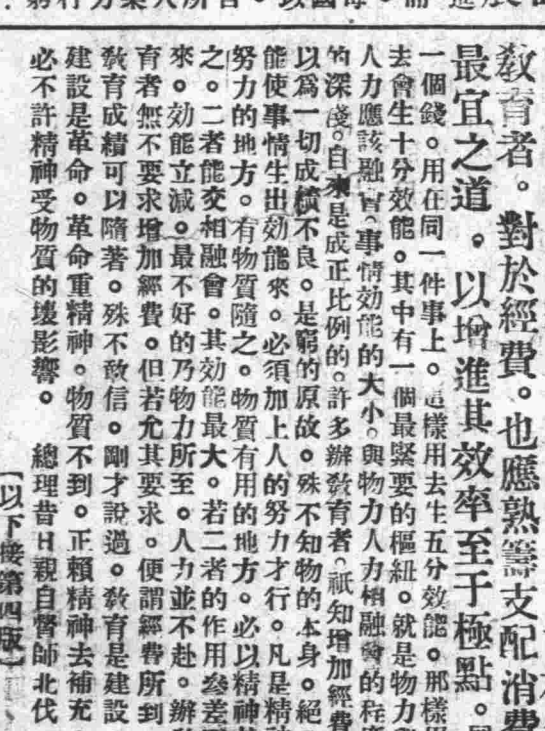 教育者。對於經費。也應熟籌支配消費
最宜之道。以增進其效率至于極點。
一個錢。用在同一件事上。這樣用去生五分效能。那樣用
去會生十分效能。其中有一個最緊要的樞紐。就是物力
人力應該融會。事情効能的大小。與物力人力相融會的程度
的深淺。自來是成正比例的。許多辦敎育者。祇知增加經費
以爲一切成績不良。是窮的原故。殊不知物的本身。絕
能使事情生出効能來。必須加上人的努力才行。凡是精神
努力的地方。有物質隨之。物質有用的地方。必以精神
之。二者能交相融會。其効能最大。若二者的作用參差
來。効能立減。最不好的乃物力所至。人力並不赴。辦
育者無不要求增加經費。但若允其要求。便謂經費所到
敎育成績可以隨著。殊不敢信。剛才說過。敎育是建設
建設是革命。革命重精神。物質不到。正賴精神去補充
必不許精神受物質的壞影響。 總理昔日親自督師北伐
【以下接第四版】